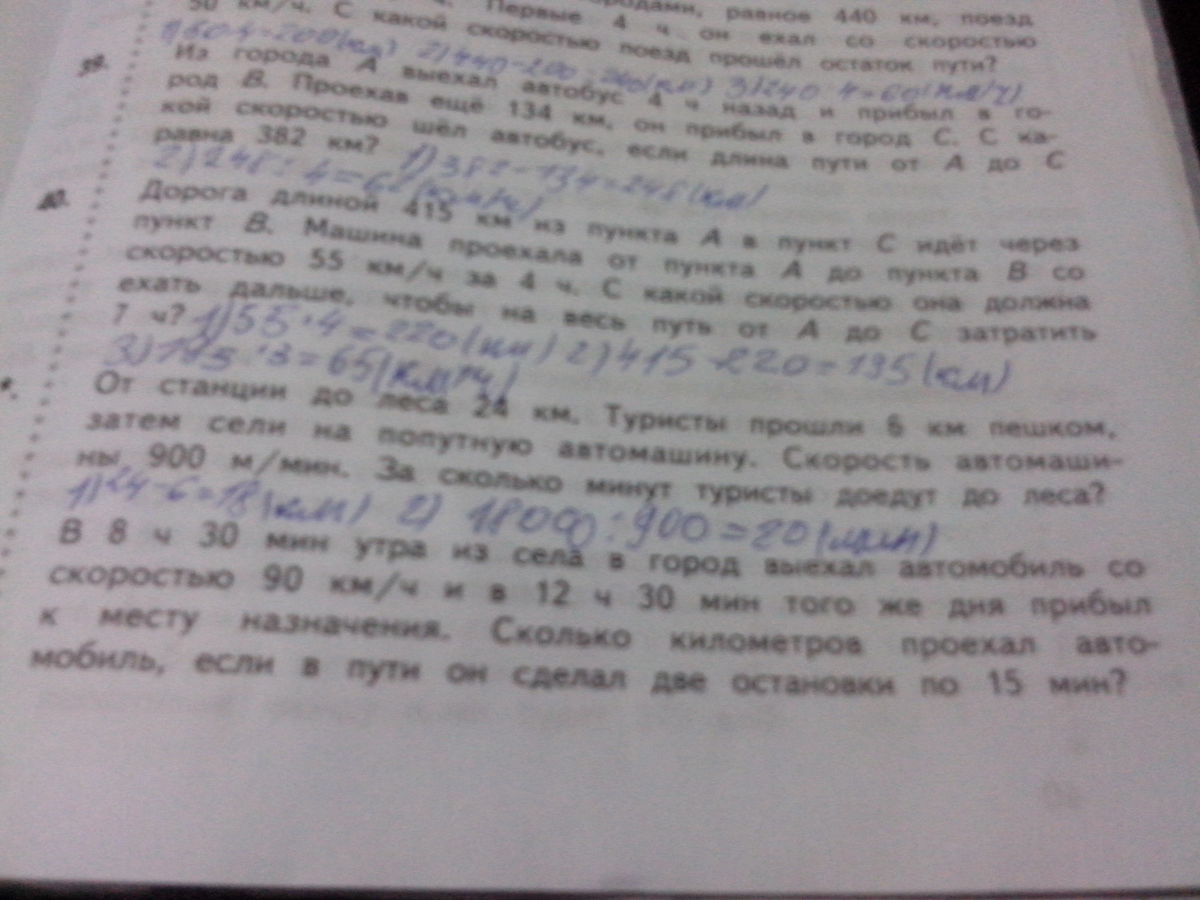 родами, равное 440 км, поезд
50 км/ч. С какой скоростью поезд прошёл остаток пути?
Первые 4 ч он ехал со скоростью
1) 50·4=200(км) 2) 440-200=240(км) 3) 240:4=60(км/ч)
Из города A выехал автобус 4 ч назад и прибыл в го-
род B. Проехав ещё 134 км, он прибыл в город C. С ка-
кой скоростью шёл автобус, если длина пути от A до C
равна 382 км? 1) 382-134=248(км)
2) 248:4=62(км/ч)
Дорога длиной 415 км из пункта A в пункт C идёт через
пункт B. Машина проехала от пункта A до пункта B со
скоростью 55 км/ч за 4 ч. С какой скоростью она должна
ехать дальше, чтобы на весь путь от A до C затратить
7 ч? 1) 55·4=220(км) 2) 415-220=195(км)
3) 195:3=65(км/ч)
От станции до леса 24 км. Туристы прошли 6 км пешком,
затем сели на попутную автомашину. Скорость автомаши-
ны 900 м/мин. За сколько минут туристы доедут до леса?
1) 24-6=18(км) 2) 18000:900=20(мин)
В 8 ч 30 мин утра из села в город выехал автомобиль со
скоростью 90 км/ч и в 12 ч 30 мин того же дня прибыл
к месту назначения. Сколько километров проехал авто-
мобиль, если в пути он сделал две остановки по 15 мин?